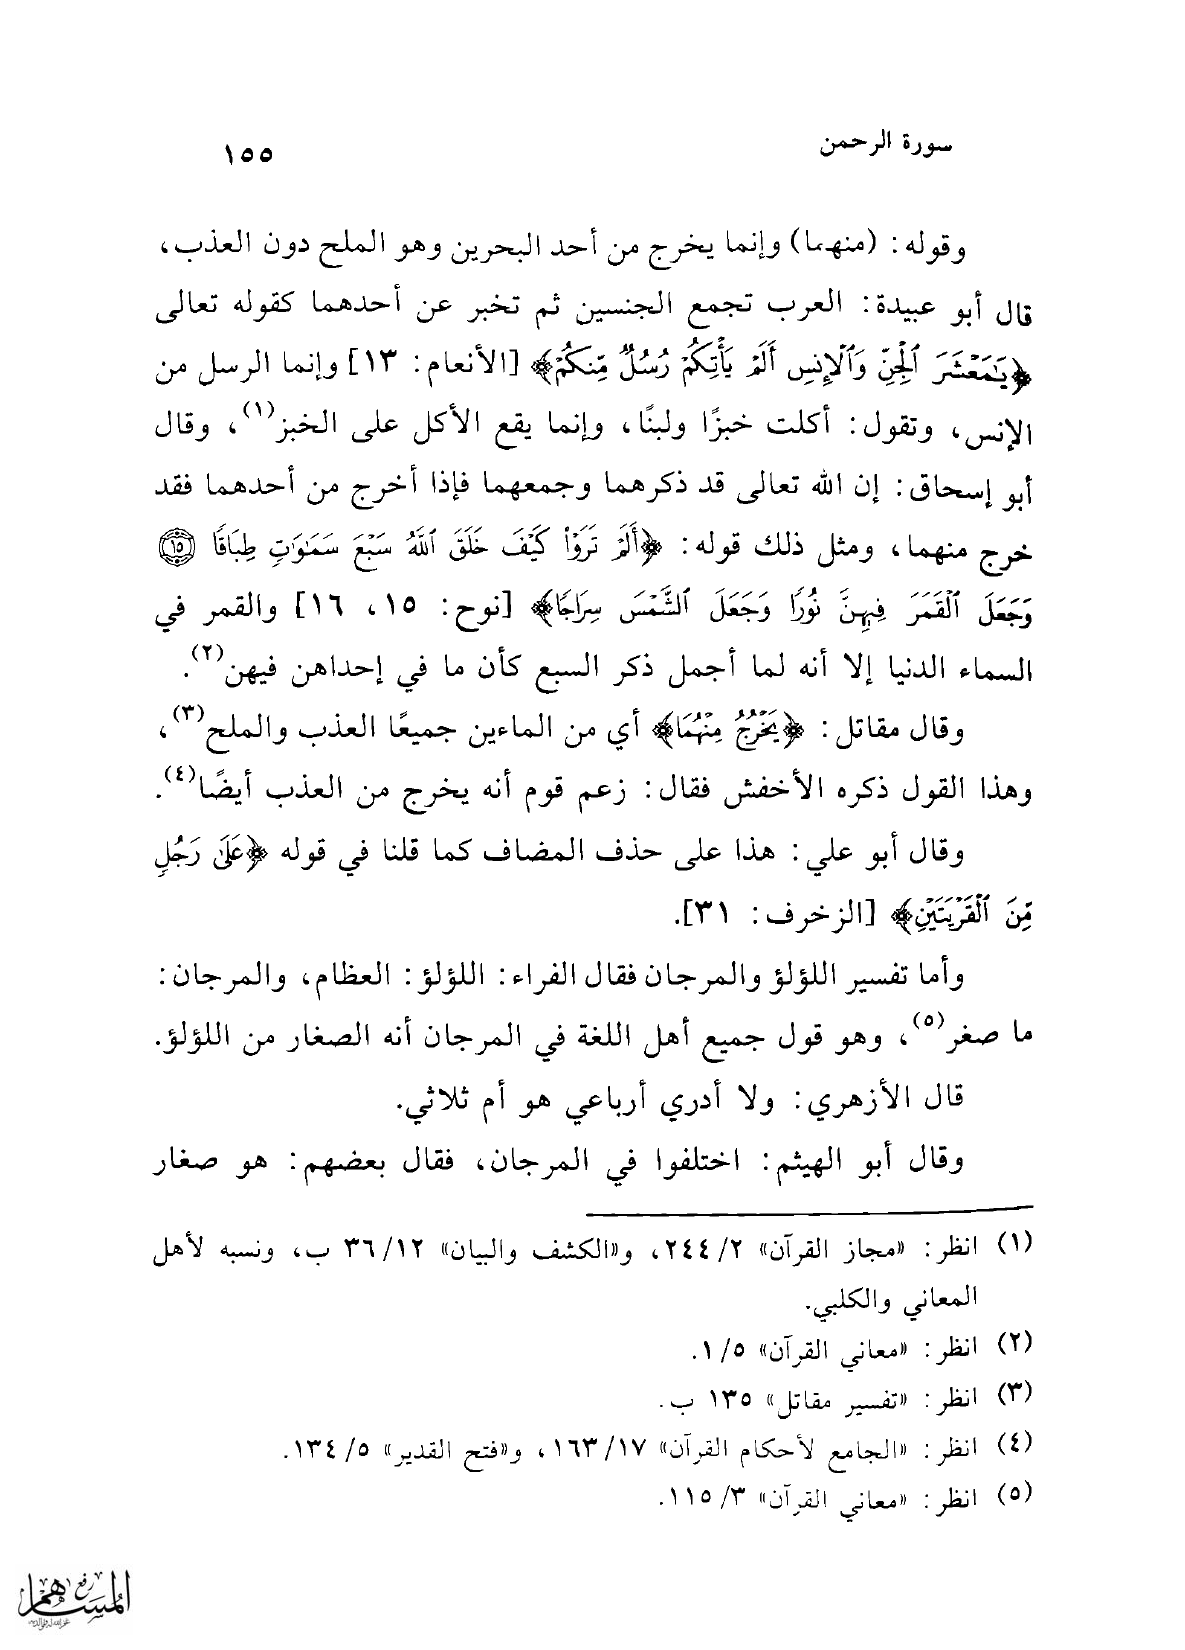 سورة الرحمن ١٥٥
وقوله: (منهما) وإنما يخرج من أحد البحرين وهو الملح دون العذب،
قال أبو عبيدة: العرب تجمع الجنسين ثم تخبر عن أحدهما كقوله تعالى
﴿يَٰمَعْشَرَ ٱلْجِنِّ وَٱلْإِنسِ أَلَمْ يَأْتِكُمْ رُسُلٌ مِّنكُمْ﴾ [الأنعام: ١٣] وإنما الرسل من
الإنس، وتقول: أكلت خبزًا ولبنًا، وإنما يقع الأكل على الخبز(١)، وقال
أبو إسحاق: إن الله تعالى قد ذكرهما وجمعهما فإذا أخرج من أحدهما فقد
خرج منهما، ومثل ذلك قوله: ﴿أَلَمْ تَرَوْا۟ كَيْفَ خَلَقَ ٱللَّهُ سَبْعَ سَمَٰوَٰتٍ طِبَاقًا ١٥
وَجَعَلَ ٱلْقَمَرَ فِيهِنَّ نُورًا وَجَعَلَ ٱلشَّمْسَ سِرَاجًا﴾ [نوح: ١٥، ١٦] والقمر في
السماء الدنيا إلا أنه لما أجمل ذكر السبع كأن ما في إحداهن فيهن(٢).
وقال مقاتل: ﴿يَخْرُجُ مِنْهُمَا﴾ أي من الماءين جميعًا العذب والملح(٣)،
وهذا القول ذكره الأخفش فقال: زعم قوم أنه يخرج من العذب أيضًا(٤).
وقال أبو علي: هذا على حذف المضاف كما قلنا في قوله ﴿عَلَىٰ رَجُلٍ
مِّنَ ٱلْقَرْيَتَيْنِ﴾ [الزخرف: ٣١].
وأما تفسير اللؤلؤ والمرجان فقال الفراء: اللؤلؤ: العظام، والمرجان:
ما صغر(٥)، وهو قول جميع أهل اللغة في المرجان أنه الصغار من اللؤلؤ.
قال الأزهري: ولا أدري أرباعي هو أم ثلاثي.
وقال أبو الهيثم: اختلفوا في المرجان، فقال بعضهم: هو صغار
(١) انظر: «مجاز القرآن» ٢/ ٢٤٤، و«الكشف والبيان» ١٢/ ٣٦ ب، ونسبه لأهل
المعاني والكلبي.
(٢) انظر: «معاني القرآن» ٥/ ١.
(٣) انظر: «تفسير مقاتل» ١٣٥ ب.
(٤) انظر: «الجامع لأحكام القرآن» ١٧/ ١٦٣، و«فتح القدير» ٥/ ١٣٤.
(٥) انظر: «معاني القرآن» ٣/ ١١٥.